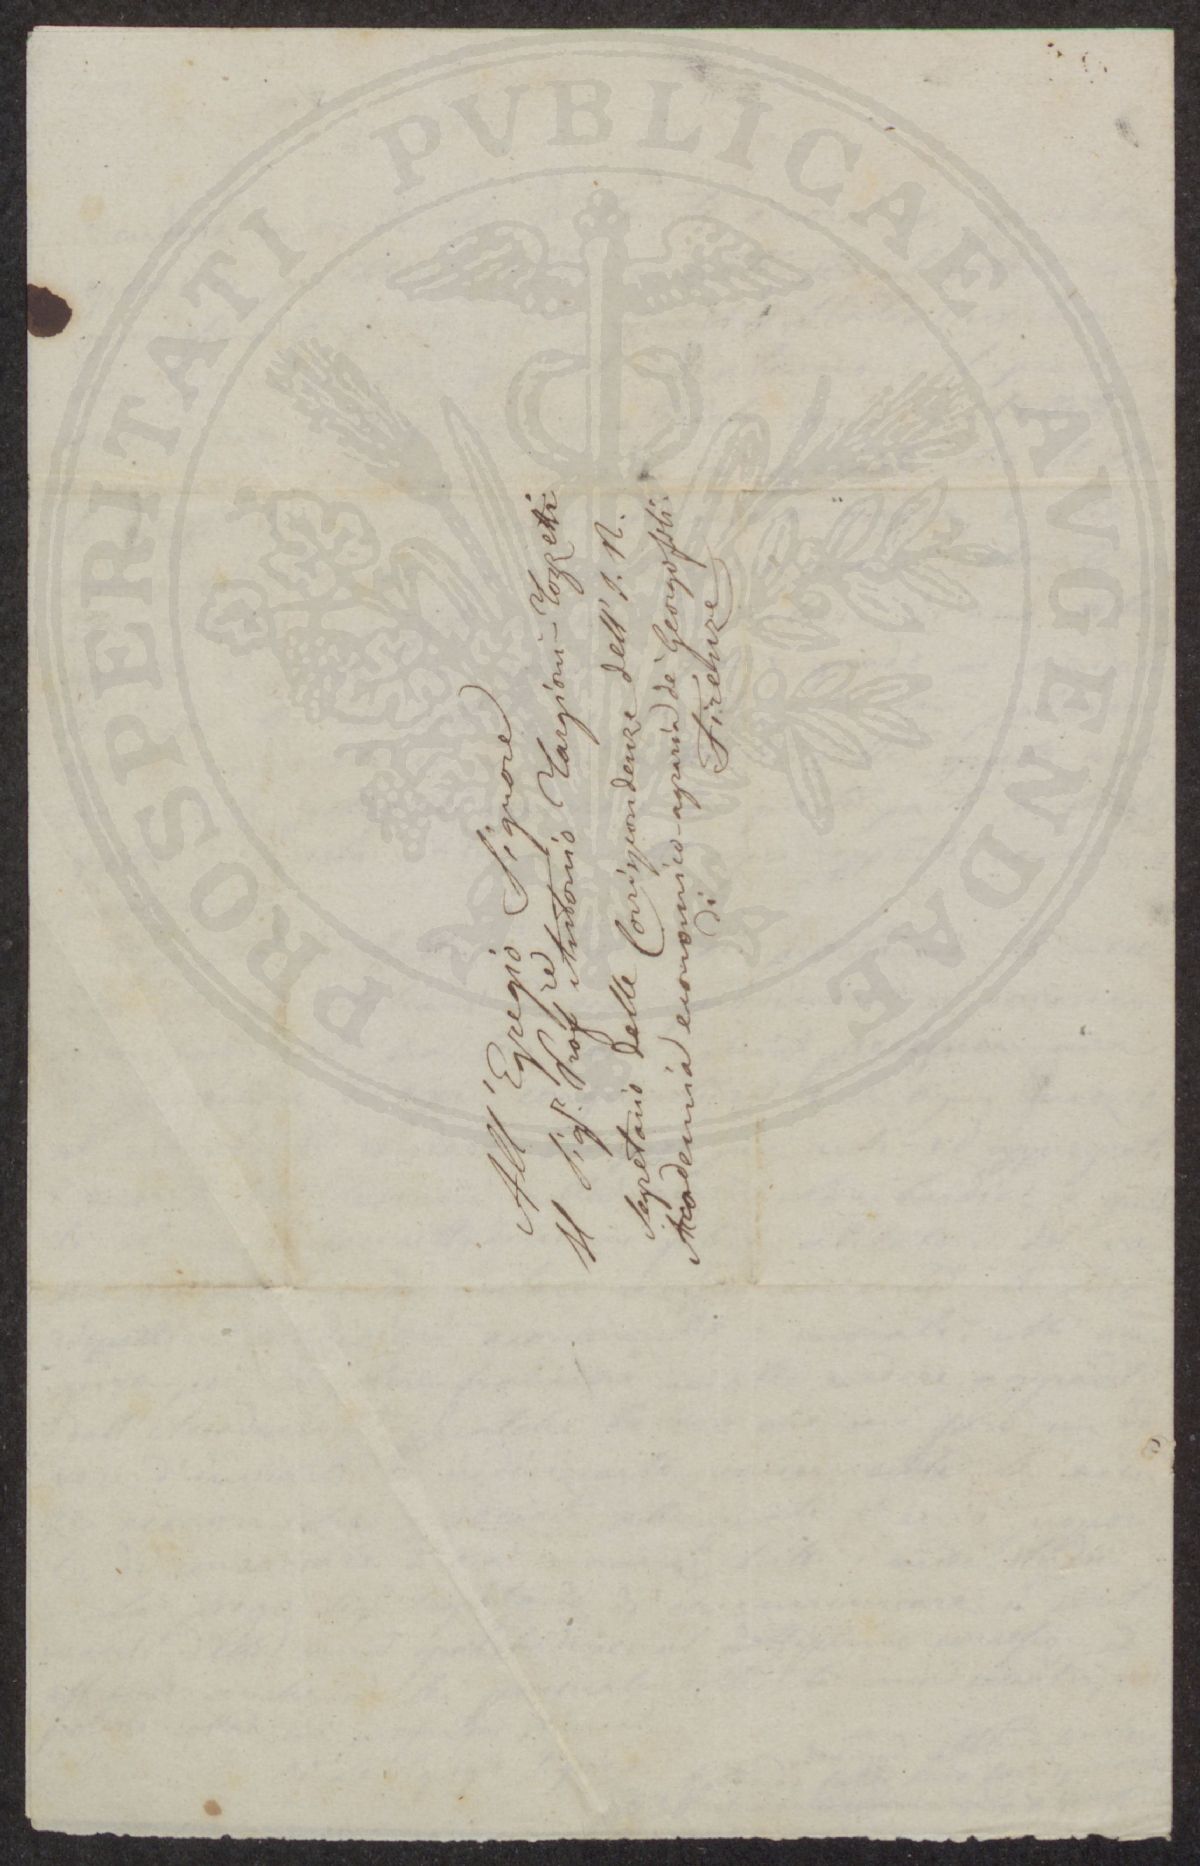 All'Egregio Signore
Il Sig.r Prof.re Antonio Targioni-Tozzetti
Segretario delle Corrispondenze dell'I. R.
Accademia economico-agraria de' Georgofili
di Firenze
PROSPERITATI PVBLICAE AVGENDAE